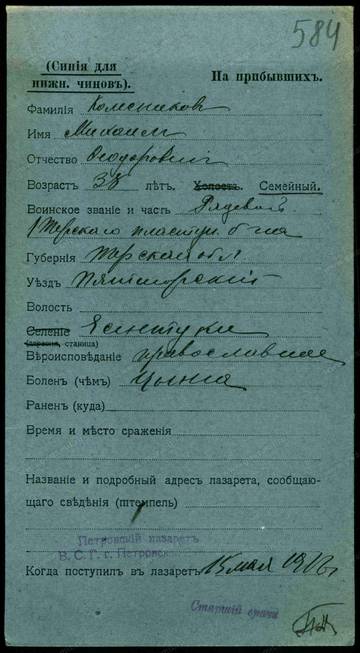 584
(Синія для
нижн. чиновъ).
На прибывшихъ.
Фамилія Колесников
Имя Михаил
Отчество Феодорович
Возрастъ 38 лѣтъ. Холостъ. Семейный.
Воинское званіе и часть Рядевой
1 Терскаго пластун. б-на
Губернія Терская обл
Уѣздъ Пятигорский
Волость
Селеніе Есентуки
(деревня, станица)
Вѣроисповѣданіе православное
Боленъ (чѣмъ) цынга
Раненъ (куда)
Время и мѣсто сраженія
Названіе и подробный адресъ лазарета, сообщаю-
щаго свѣдѣнія (штемпель)
Петровскій лазаретъ
В. С. Г. г. Петровск
Когда поступилъ въ лазаретъ 15 мая 1916 г
Старшій врачъ